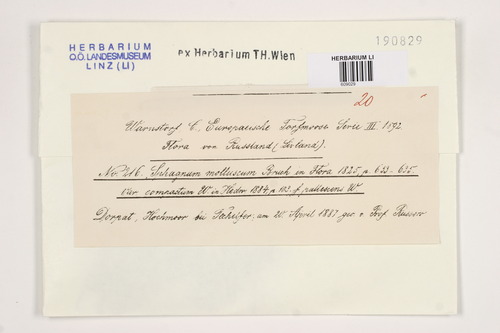 HERBARIUM
O.Ö. LANDESMUSEUM
LINZ (LI)
ex Herbarium TH.Wien
190829
HERBARIUM LI
20
Warnstorf C., Europaeische Torfmoose Serie III. 1892.
Flora von Russland (Livland).
No. 216. Sphagnum molluscum Bruch in Flora 1825, p. 633-635.
var. compactum W. in Hedw. 1884, p. 103. f. pallescens W.
Dorpat, Hochmoor bei 20. April 1887 Prof. Russow